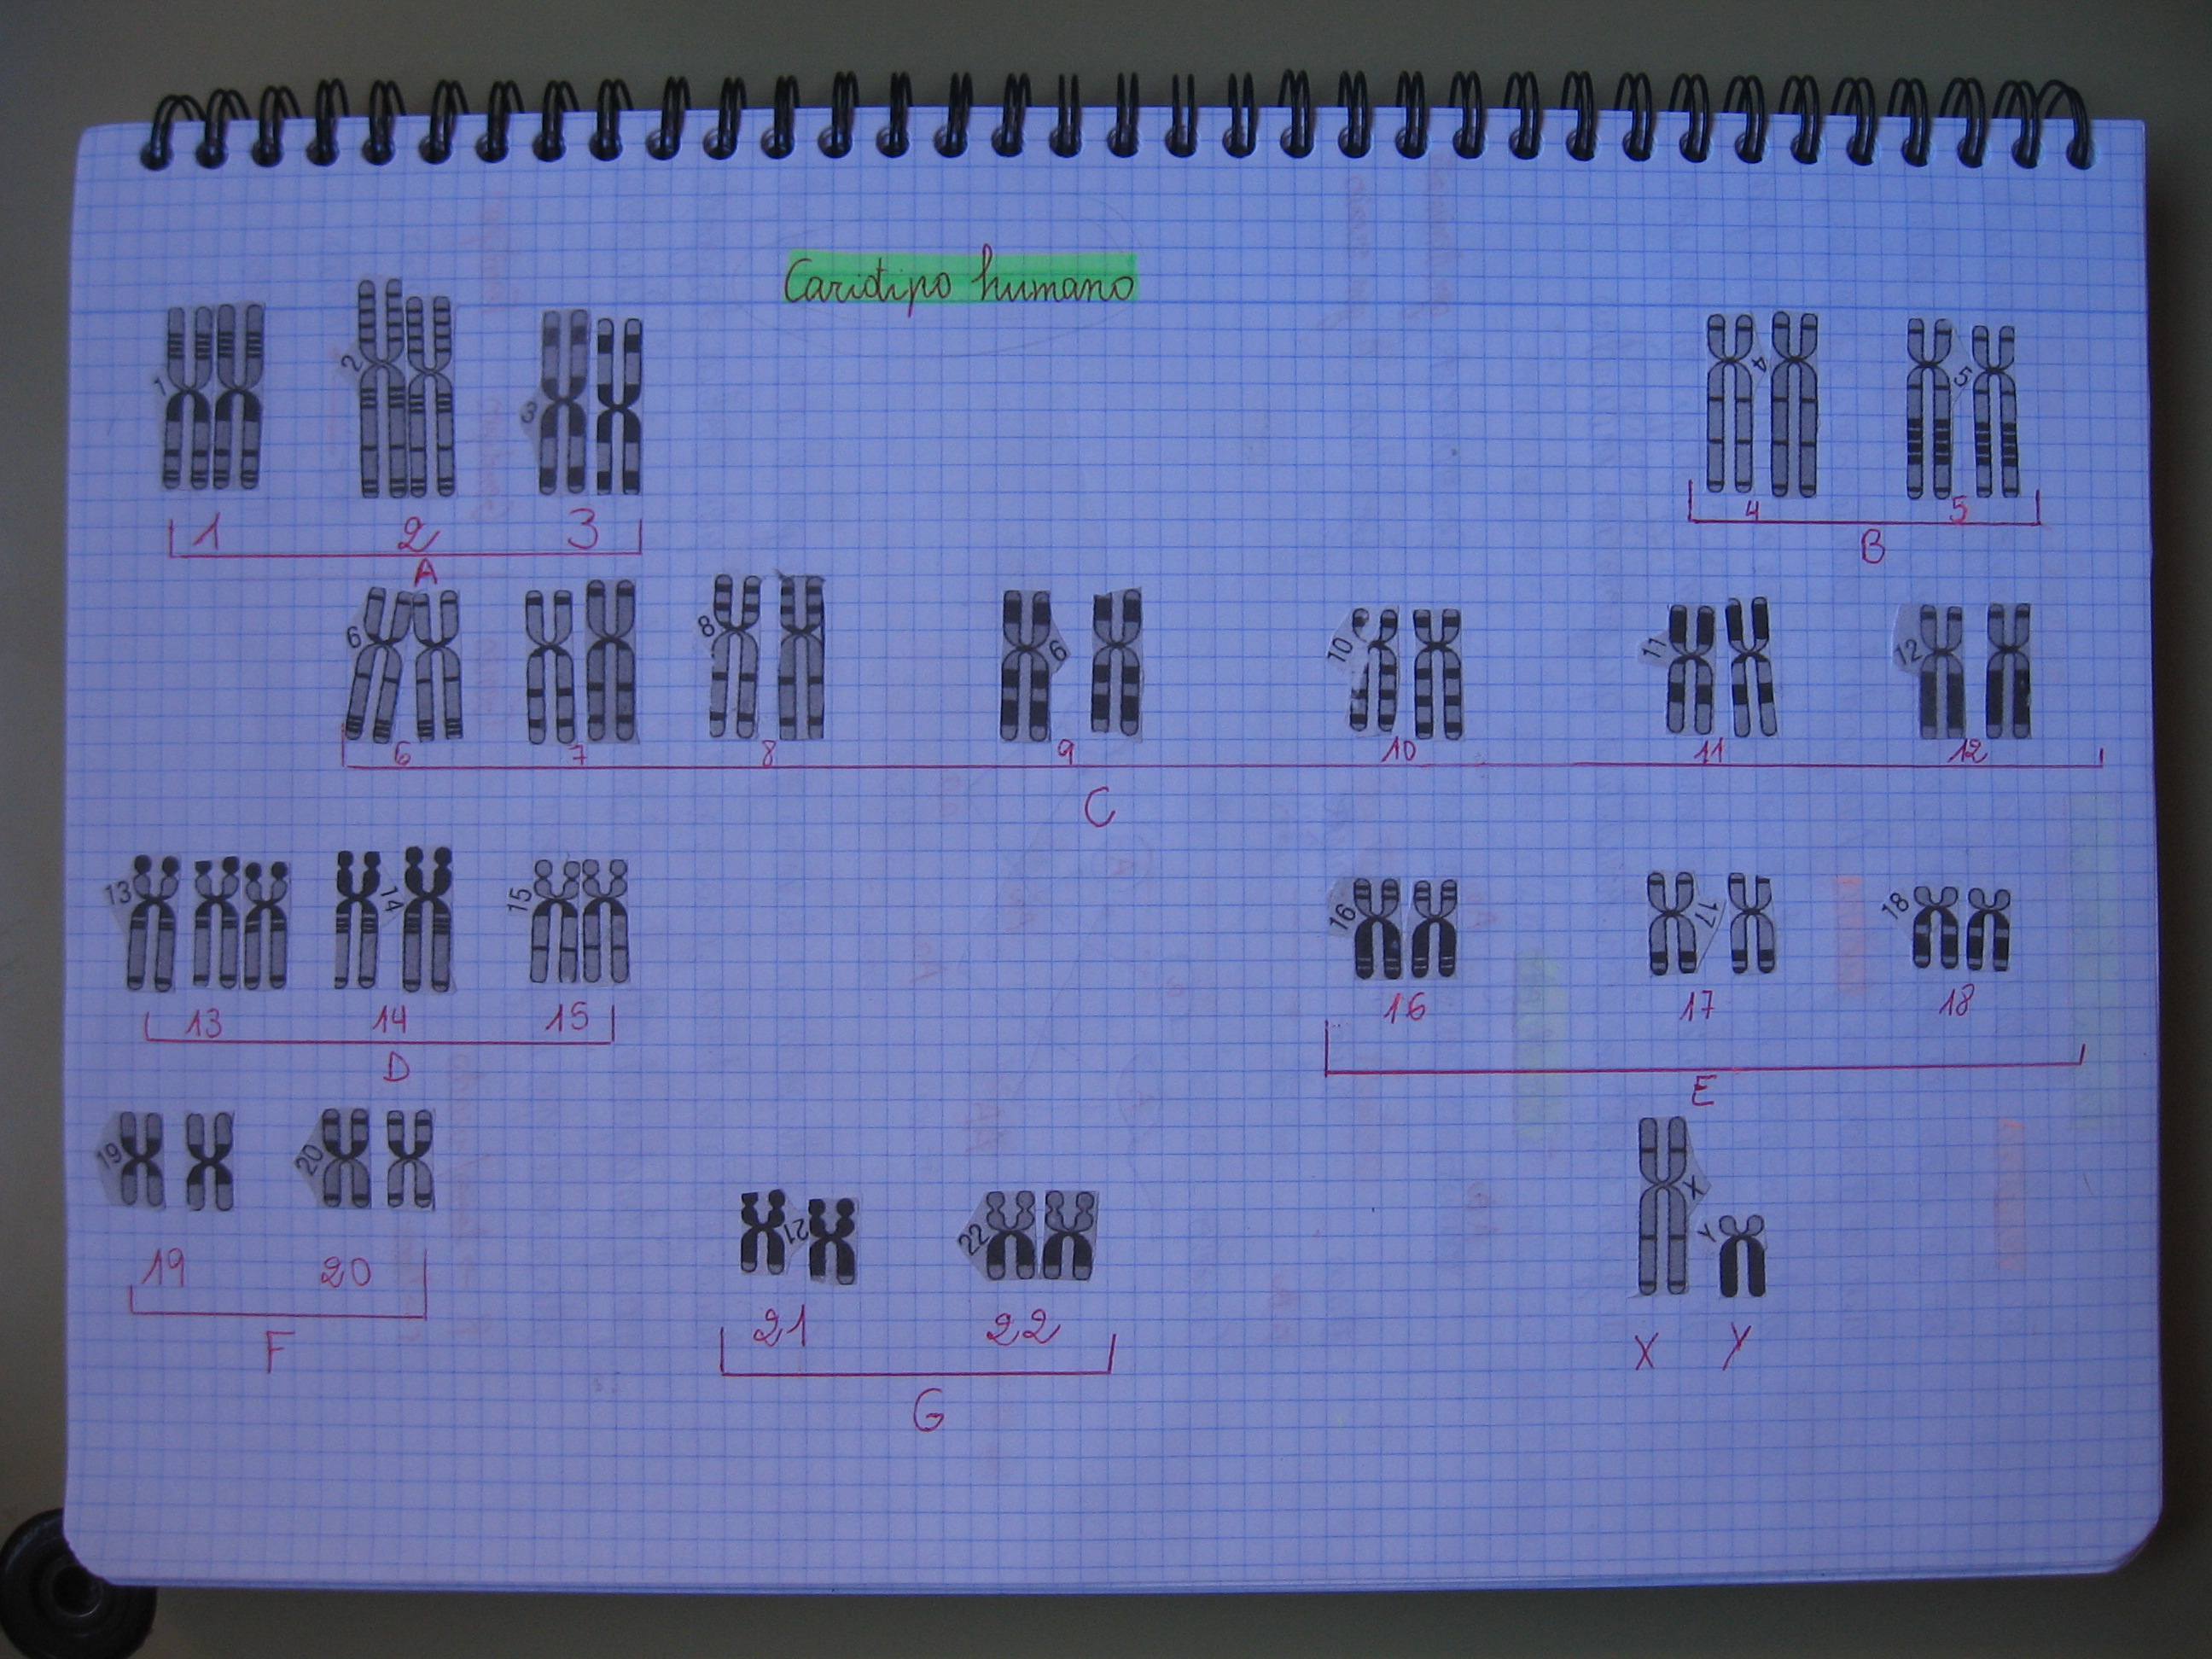 Cariotipo humano
1 2 3 4 5
1 2 3 4 5
A B
6 8 9 10 11 12
6 7 8 9 10 11 12
C
13 14 15 16 17 18
13 14 15 16 17 18
D E
19 20 21 22 X Y
19 20 21 22 X Y
F G